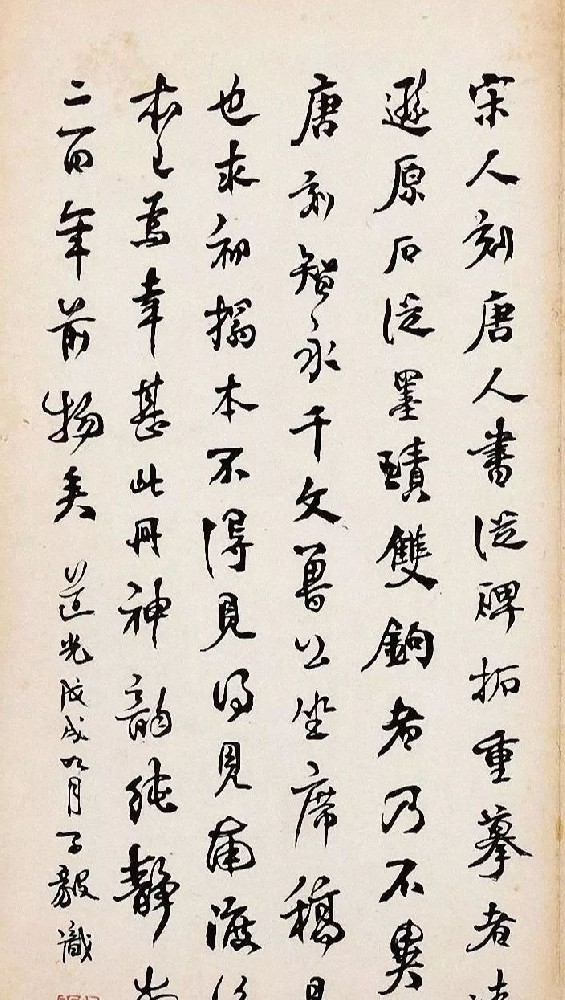 宋人刻唐人書從碑拓重摹者
遜原石從墨蹟雙鉤者乃不異
唐刻智永千文魯公坐席稿
也求初搨本不得見得見南渡
本已焉幸甚此冊神韵純靜
二百年前物矣 道光戊戌 月子毅識